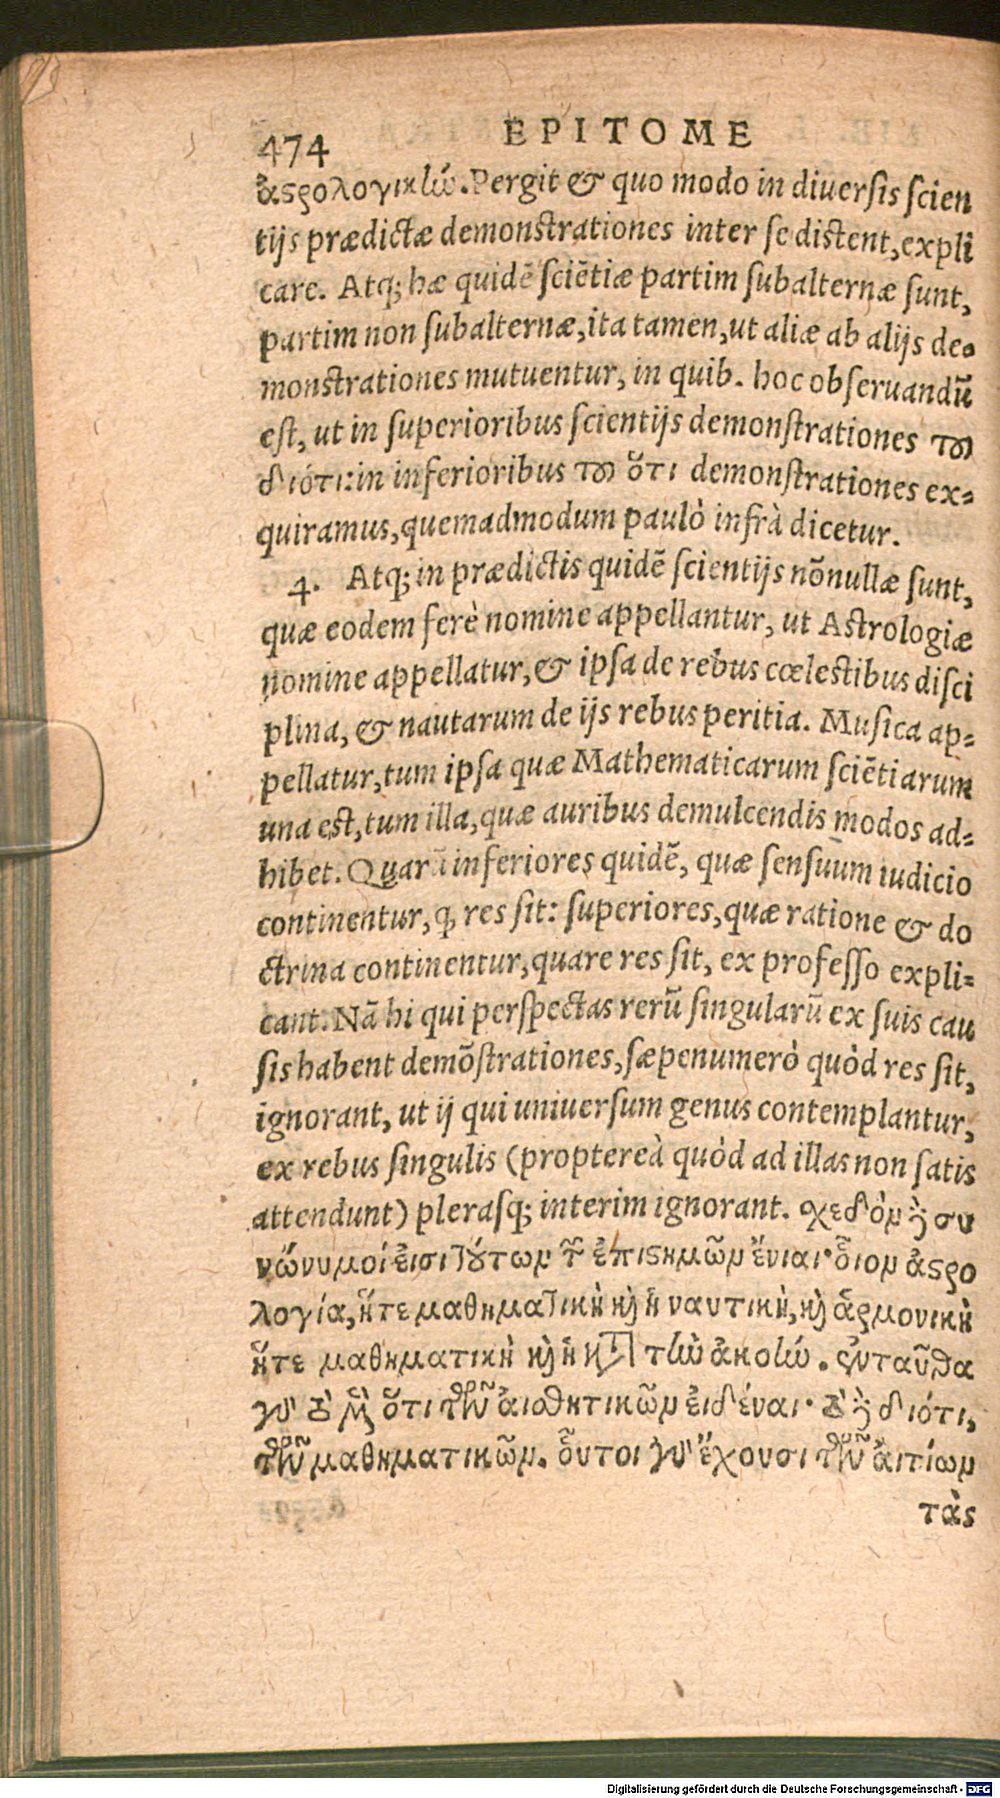 474 EPITOME
ἀϛρολογικὼ. Pergit & quo modo in diuersis scien
tijs prædictæ demonstrationes inter se distent, expli
care. Atq; hæ quidē sciētiæ partim subalternæ sunt,
partim non subalternæ, ita tamen, ut aliæ ab alijs de-
monstrationes mutuentur, in quib. hoc obseruandū
est, ut in superioribus scientijs demonstrationes τȣ
διότι: in inferioribus τȣ ὅτι demonstrationes ex-
quiramus, quemadmodum paulò infrà dicetur.
4. Atq; in prædictis quidē scientijs nōnullæ sunt,
quæ eodem ferè nomine appellantur, ut Astrologiæ
nomine appellatur, & ipsa de rebus cœlestibus disci
plina, & nautarum de ijs rebus peritia. Musica ap-
pellatur, tum ipsa quæ Mathematicarum sciētiarum
una est, tum illa, quæ auribus demulcendis modos ad-
hibet. Quarū inferiores quidē, quæ sensuum iudicio
continentur, ꝙ res sit: superiores, quæ ratione & do
ctrina continentur, quare res sit, ex professo expli-
cant. Nā hi qui perspectas rerū singularū ex suis cau
sis habent demōstrationes, sæpenumerò quòd res sit,
ignorant, ut ij qui uniuersum genus contemplantur,
ex rebus singulis (propterea quòd ad illas non satis
attendunt) plerasq; interim ignorant. χεδὸν δὲ συ
νώνυμοί ἐισι τȣ́των τ͂ ἐπιϛημῶν ἔνιαι· οἷον ἀϛρο
λογία, ἥτε μαθηματικὴ κὶ ἡ ναυτικὴ, κὶ ἁρμονικὴ
ἥτε μαθηματικὴ κὶ ἡ κτ̀ τὼ ἀκοὼ. ἐνταῦθα
γὸ τὸ μὲν ὅτι τῶν ἀισθητικῶν ἐιδέναι· τὸ δὲ διότι,
τῶν μαθηματικῶν. οὗτοι γὸ ἔχουσι τῶν ἀιτίων
τὰς